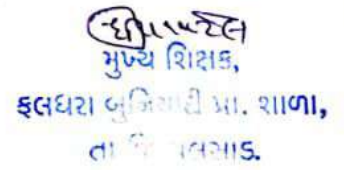 મુખ્ય શિક્ષક,
ફલધરા બુનિયાદી પ્રા. શાળા,
તા જિ વલસાડ.